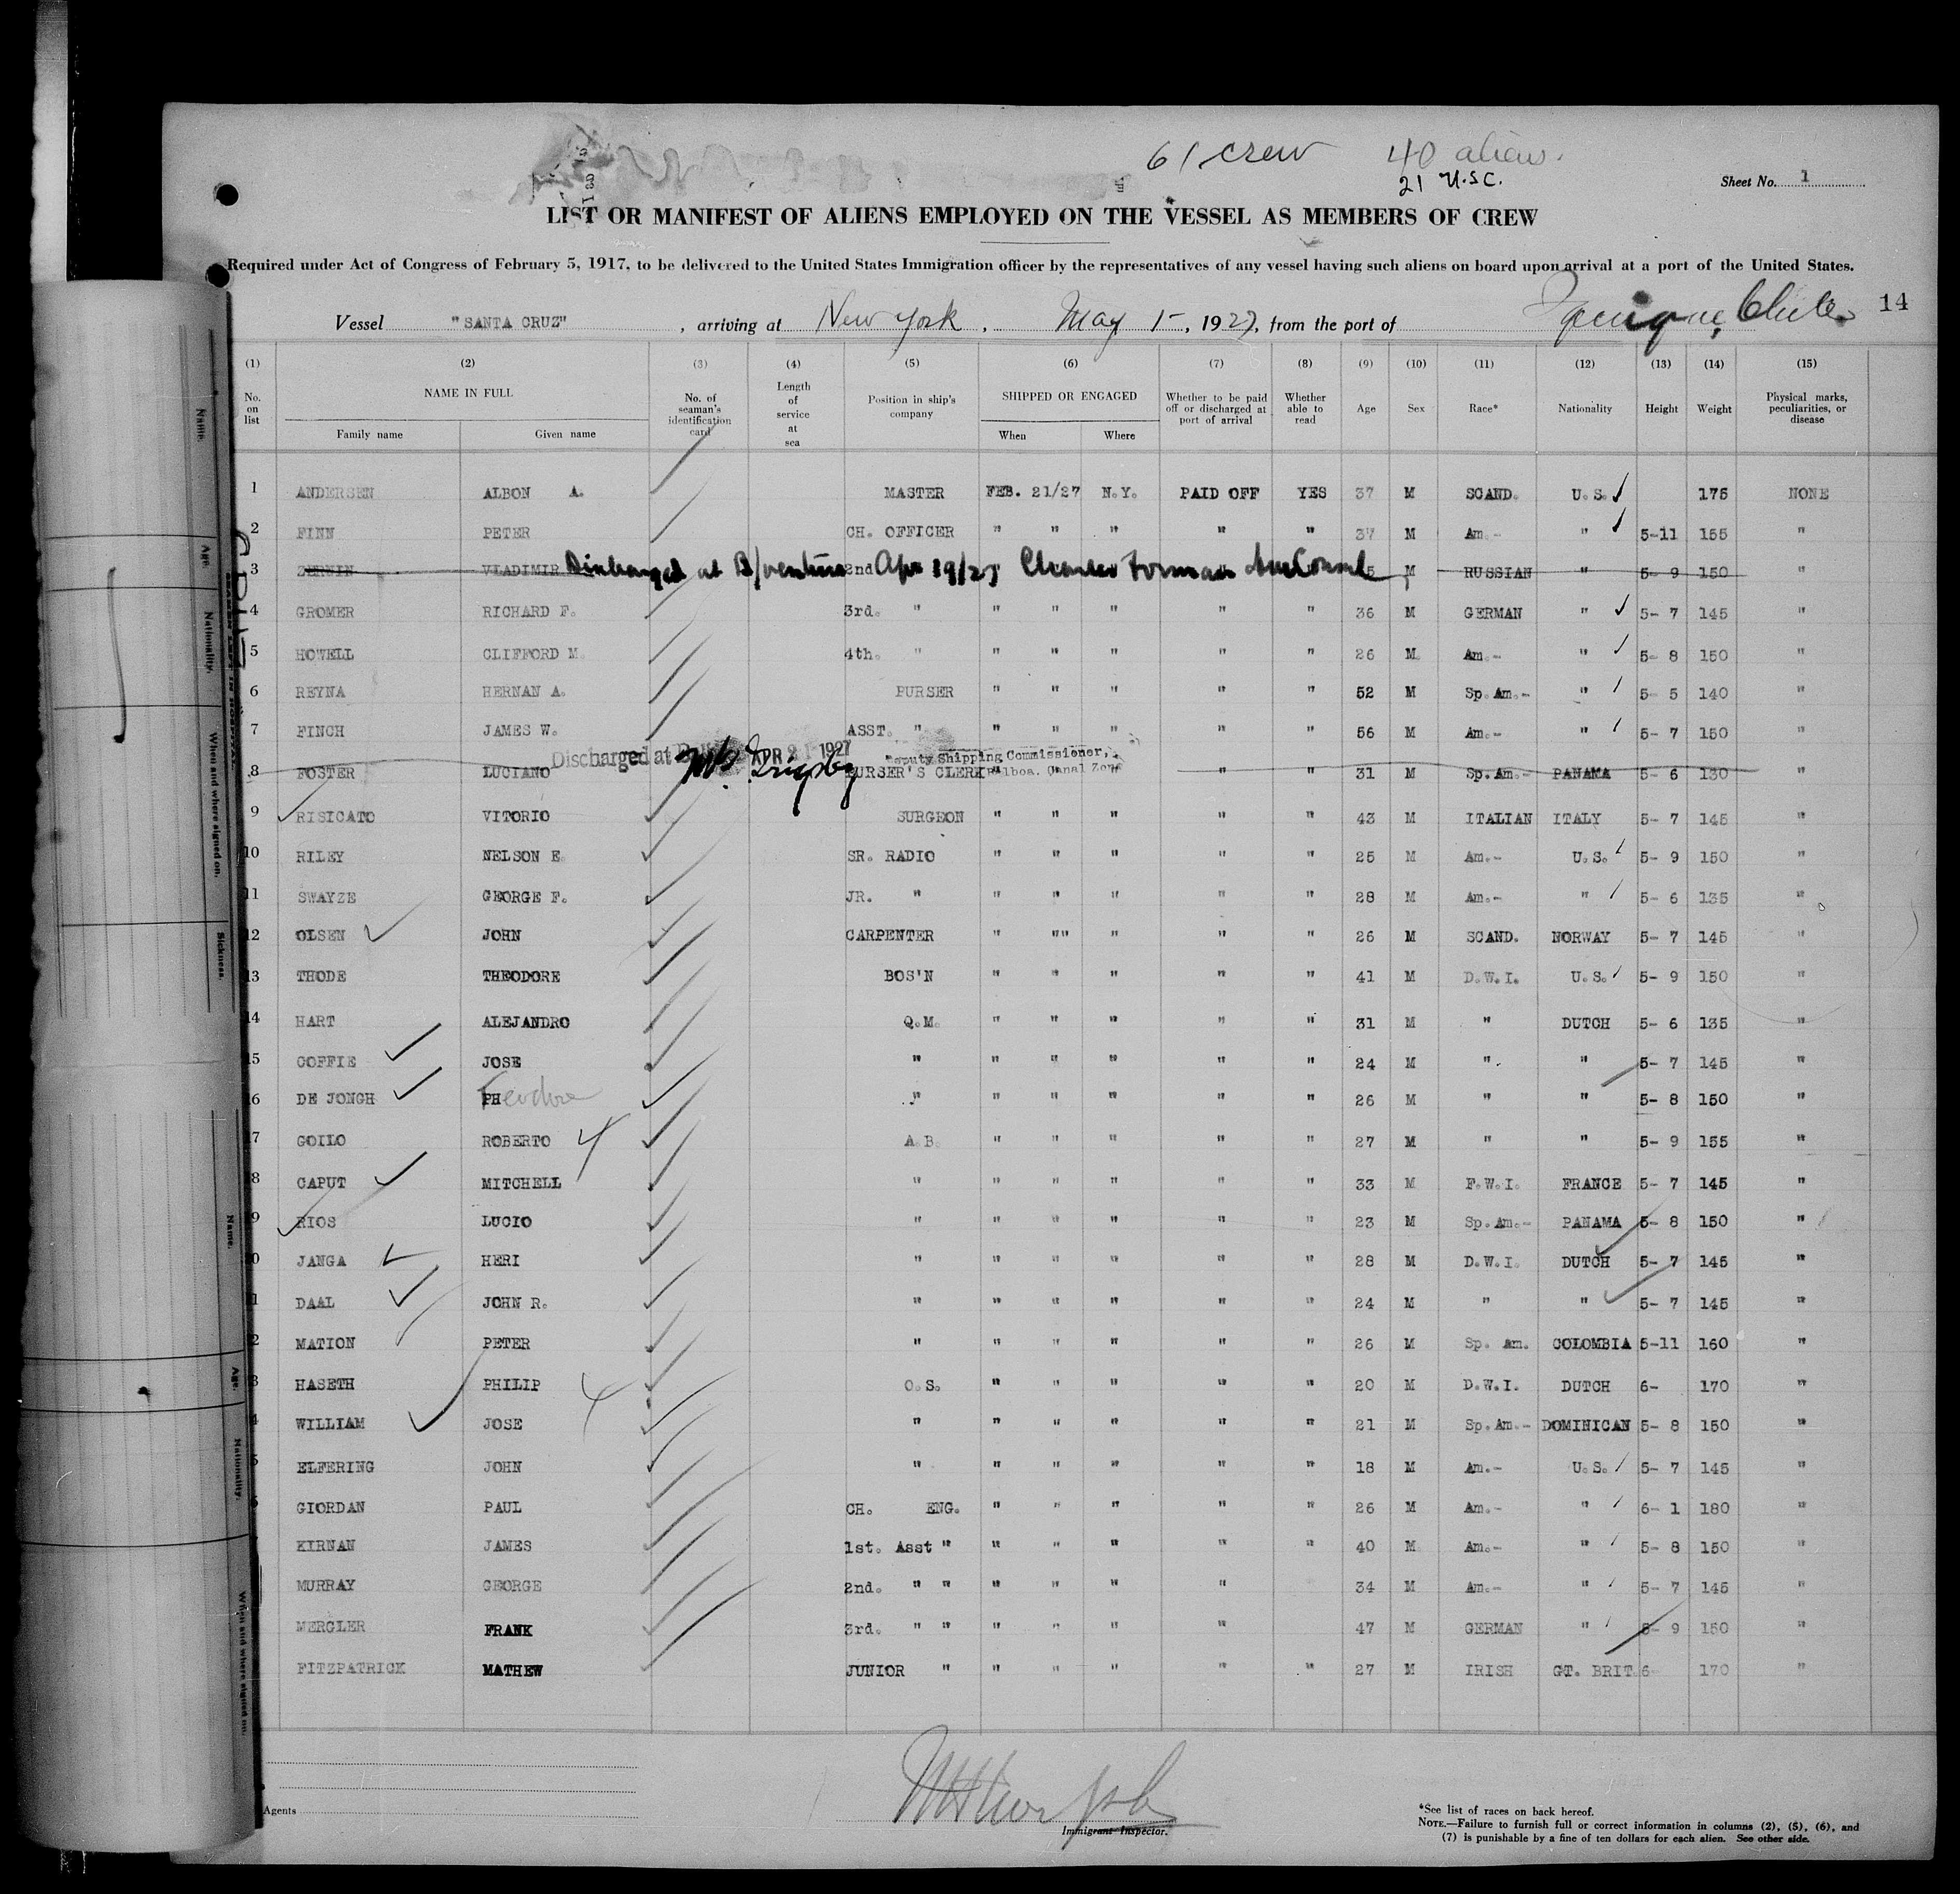 61 crew 40 aliens.
21 U.S.C.
Sheet No. 1
LIST OR MANIFEST OF ALIENS EMPLOYED ON THE VESSEL AS MEMBERS OF CREW
Required under Act of Congress of February 5, 1917, to be delivered to the United States Immigration officer by the representatives of any vessel having such aliens on board upon arrival at a port of the United States.
Vessel "SANTA CRUZ", arriving at New York, May 1-, 1927, from the port of Chile 14
(1) (2) (3) (4) (5) (6) (7) (8) (9) (10) (11) (12) (13) (14) (15)
No. on list NAME IN FULL Family name Given name No. of seaman's identification card Length of service at sea Position in ship's company SHIPPED OR ENGAGED When Where Whether to be paid off or discharged at port of arrival Whether able to read Age Sex Race* Nationality Height Weight Physical marks, peculiarities, or disease
1 ANDERSEN ALBON A. MASTER FEB. 21/27 N.Y. PAID OFF YES 37 M SCAND. U.S. 175 NONE
2 FINN PETER CH. OFFICER " " " " " 37 M Am.- " 5-11 155 "
3 VLADIMIR Discharged at B/ventura 2nd Apr 19/27 Charles Forman M RUSSIAN " 5- 9 150 "
4 GROMER RICHARD F. 3rd. " " " " " " 36 M GERMAN " 5- 7 145 "
5 HOWELL CLIFFORD M. 4th. " " " " " " 26 M. Am.- " 5- 8 150 "
6 REYNA HERNAN A. PURSER " " " " " 52 M Sp.Am.- " 5- 5 140 "
7 FINCH JAMES W. ASST. " " " " " " 56 M Am.- " 5- 7 150 "
Discharged at APR 21 1927 Deputy Shipping Commissioner,
8 FOSTER LUCIANO PURSER'S CLERK " Balboa. Canal Zone " " 31 M Sp.Am.- PANAMA 5- 6 130 "
9 RISICATO VITORIO SURGEON " " " " " 43 M ITALIAN ITALY 5- 7 145 "
10 RILEY NELSON E. SR. RADIO " " " " " 25 M Am.- U.S. 5- 9 150 "
11 SWAYZE GEORGE F. JR. " " " " " " 28 M Am.- " 5- 6 135 "
12 OLSEN JOHN CARPENTER " "" " " " 26 M SCAND. NORWAY 5- 7 145 "
13 THODE THEODORE BOS'N " " " " " 41 M D.W.I. U.S. 5- 9 150 "
14 HART ALEJANDRO Q.M. " " " " " 31 M " DUTCH 5- 6 135 "
15 COFFIE JOSE " " " " " " 24 M " " 5- 7 145 "
16 DE JONGH PH " " " " " " 26 M " " 5- 8 150 "
17 GOILO ROBERTO A.B. " " " " " 27 M " " 5- 9 155 "
8 CAPUT MITCHELL " " " " " " 33 M F.W.I. FRANCE 5- 7 145 "
9 RIOS LUCIO " " " " " " 23 M Sp.Am.- PANAMA 5- 8 150 "
0 JANGA HERI " " " " " " 28 M D.W.I. DUTCH 5- 7 145 "
1 DAAL JOHN R. " " " " " " 24 M " " 5- 7 145 "
2 MATION PETER " " " " " " 26 M Sp. Am. COLOMBIA 5-11 160 "
3 HASETH PHILIP O.S. " " " " " 20 M D.W.I. DUTCH 6- 170 "
4 WILLIAM JOSE " " " " " " 21 M Sp.Am.- DOMINICAN 5- 8 150 "
5 ELFERING JOHN " " " " " " 18 M Am.- U.S. 5- 7 145 "
GIORDAN PAUL CH. ENG. " " " " " 26 M Am.- " 6- 1 180 "
KIRNAN JAMES 1st. Asst " " " " " " 40 M Am.- " 5- 8 150 "
MURRAY GEORGE 2nd. " " " " " " 34 M Am.- " 5- 7 145 "
MERGLER FRANK 3rd. " " " " " " 47 M GERMAN " 5- 9 150 "
FITZPATRICK MATHEW JUNIOR " " " " " " 27 M IRISH GT. BRIT. 6- 170 "
Agents
Immigrant Inspector.
*See list of races on back hereof.
NOTE.—Failure to furnish full or correct information in columns (2), (5), (6), and
(7) is punishable by a fine of ten dollars for each alien. See other side.
Name.
Age.
Nationality.
When and where signed on.
Sickness.
Name.
Age.
Nationality.
When and where signed on.